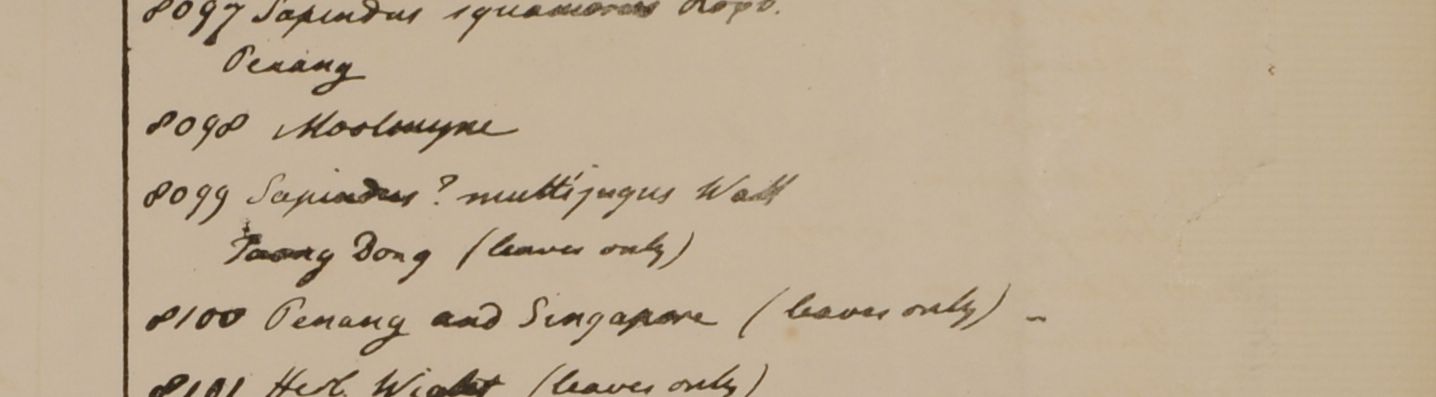 8097 Sapindus squamosus Roxb.
Penang
8098 Moolmyne
8099 Sapindus ? multijugus Wall
Taong Dong (leaves only)
8100 Penang and Singapore (leaves only) -
8101 Herb. Wight (leaves only)